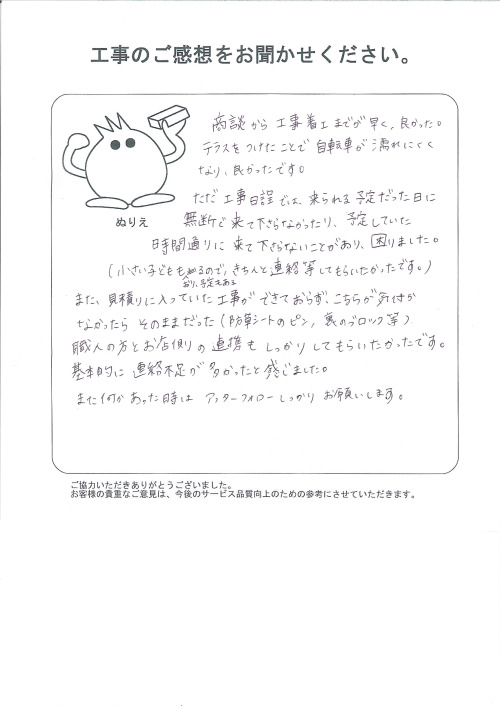 工事のご感想をお聞かせください。
商談から工事着工までが早く、良かった。
テラスをつけたことで自転車が濡れにくく
なり、良かったです。
ただ工事日程では、来られる予定だった日に
無断で来て下さらなかったり、予定していた
時間通りに来て下さらないことがあり、困りました。
(小さい子どももいるので、きちんと連絡等してもらいたかったです。)
おり、予定もある
また、見積りに入っていた工事ができておらず、こちらが気付か
なかったらそのままだった(防草シートのピン、裏のブロック等)
職人の方とお店側の連携もしっかりしてもらいたかったです。
基本的に連絡不足が多かったと感じました。
また何かあった時はアフターフォローしっかりお願いします。
ぬりえ
ご協力いただきありがとうございました。
お客様の貴重なご意見は、今後のサービス品質向上のための参考にさせていただきます。